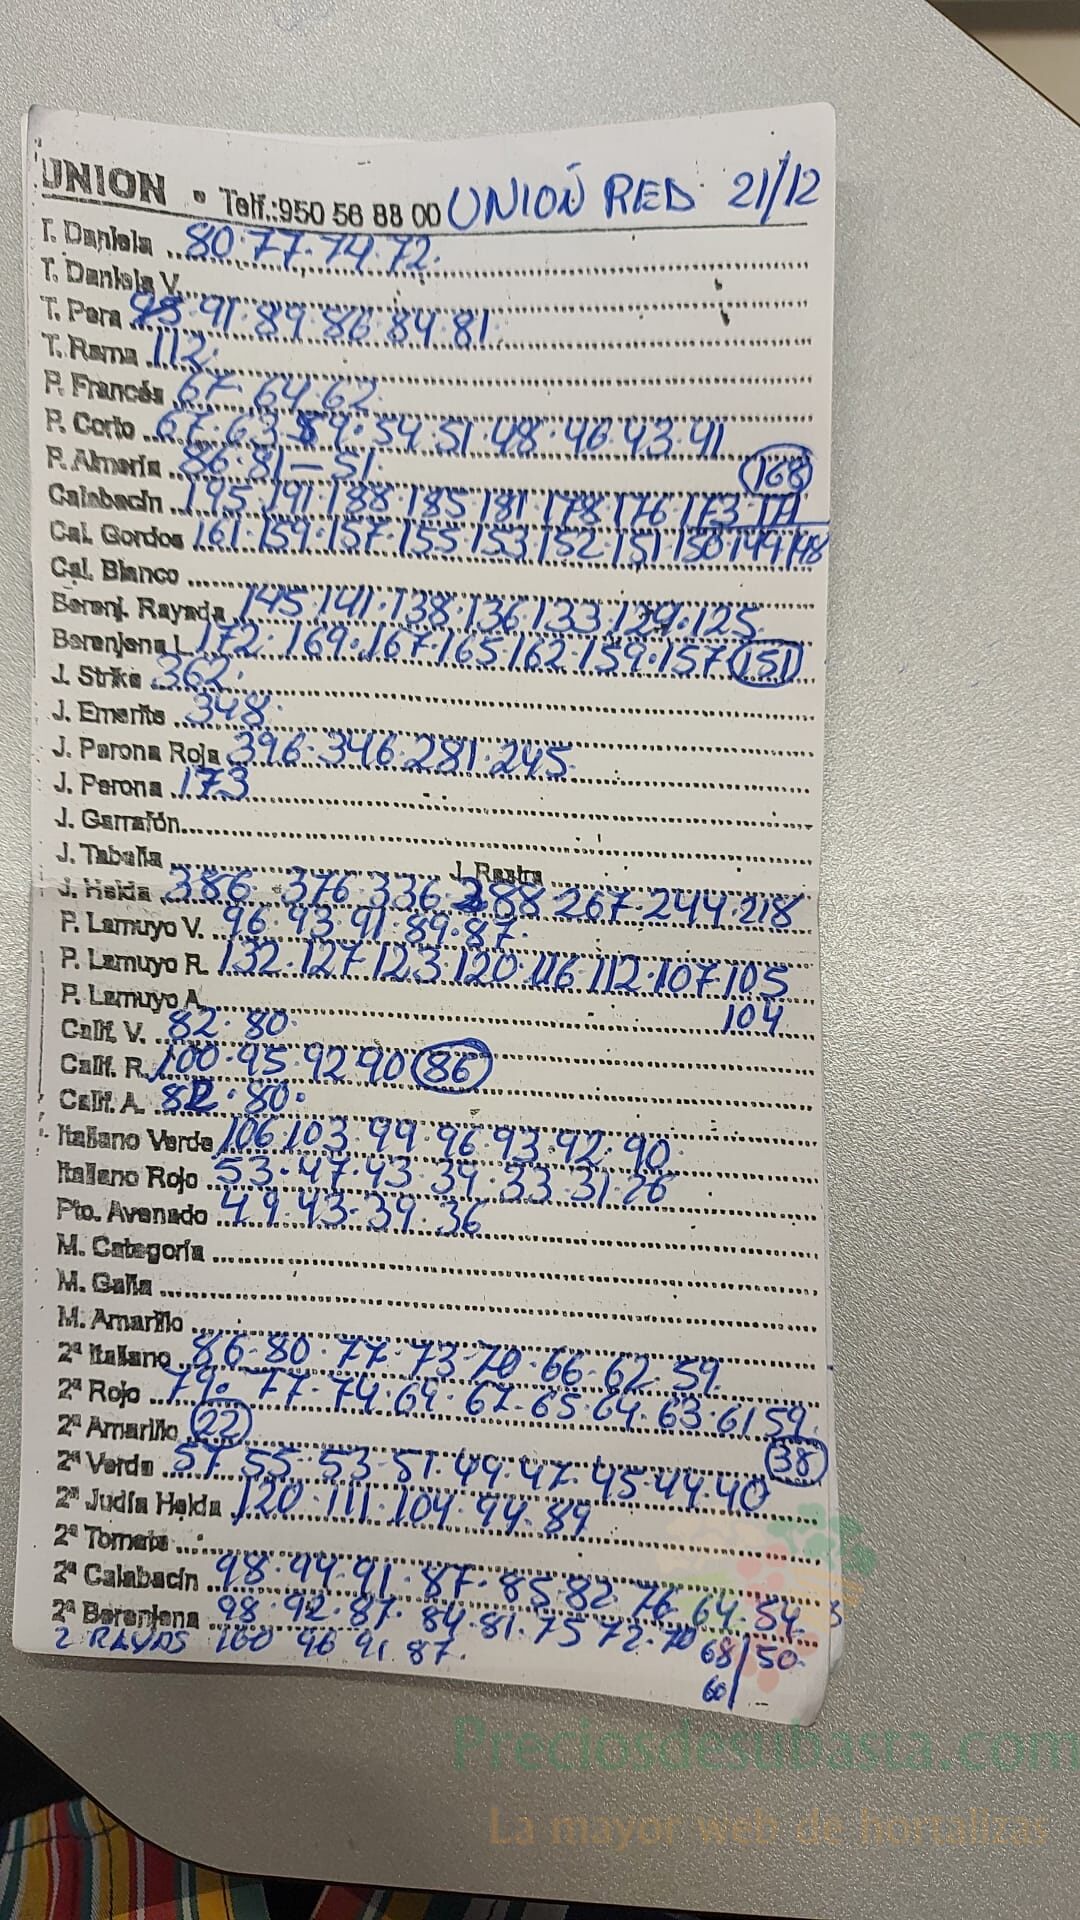 UNION • Telf.:950 56 88 00 UNIÓN RED 21/12
T. Daniela 80·77·74·72.
T. Daniela V.
T. Pera 95·91·89·86·84·81.
T. Rama 112.
P. Francés 67·64·62.
P. Corto 67·63·59·54·51·48·46·43·41
P. Almería 86·81–51. 168
Calabacín 195·191·188·185·181·178·176·173·171
Cal. Gordos 161·159·157·155·153·152·151·150·149·148
Cal. Blanco
Berenj. Rayada 145·141·138·136·133·129·125.
Berenjena L. 172·169·167·165·162·159·157 151
J. Strike 362.
J. Emerite 348.
J. Perona Roja 396·346·281·245.
J. Perona 173
J. Garrafón
J. Tabella J. Rastra
J. Helda 386·376·336·288·267·244·218
P. Lamuyo V. 96·93·91·89·87.
P. Lamuyo R. 132·127·123·120·116·112·107·105
P. Lamuyo A. 104
Calif. V. 82·80.
Calif. R. 100·95·92·90 86
Calif. A. 82·80.
Italiano Verde 106·103·99·96·93·92·90.
Italiano Rojo 53·47·43·39·33·31·26
Pto. Avenado 49·43·39·36
M. Categoría
M. Galia
M. Amarillo
2ª Italiano 86·80·77·73·70·66·62·59.
2ª Rojo 79·77·74·69·67·65·64·63·61·59.
2ª Amarillo 22 38
2ª Verde 57·55·53·51·49·47·45·44·40
2ª Judía Helda 120·111·104·94·89
2ª Tomate
2ª Calabacín 98·94·91·87·85·82·76·64·54.
2ª Berenjena 98·92·87·84·81·75·72·70 68/50.
2 RAYAS 100 96 91 87. 60
Preciosdesubasta.com
La mayor web de hortalizas